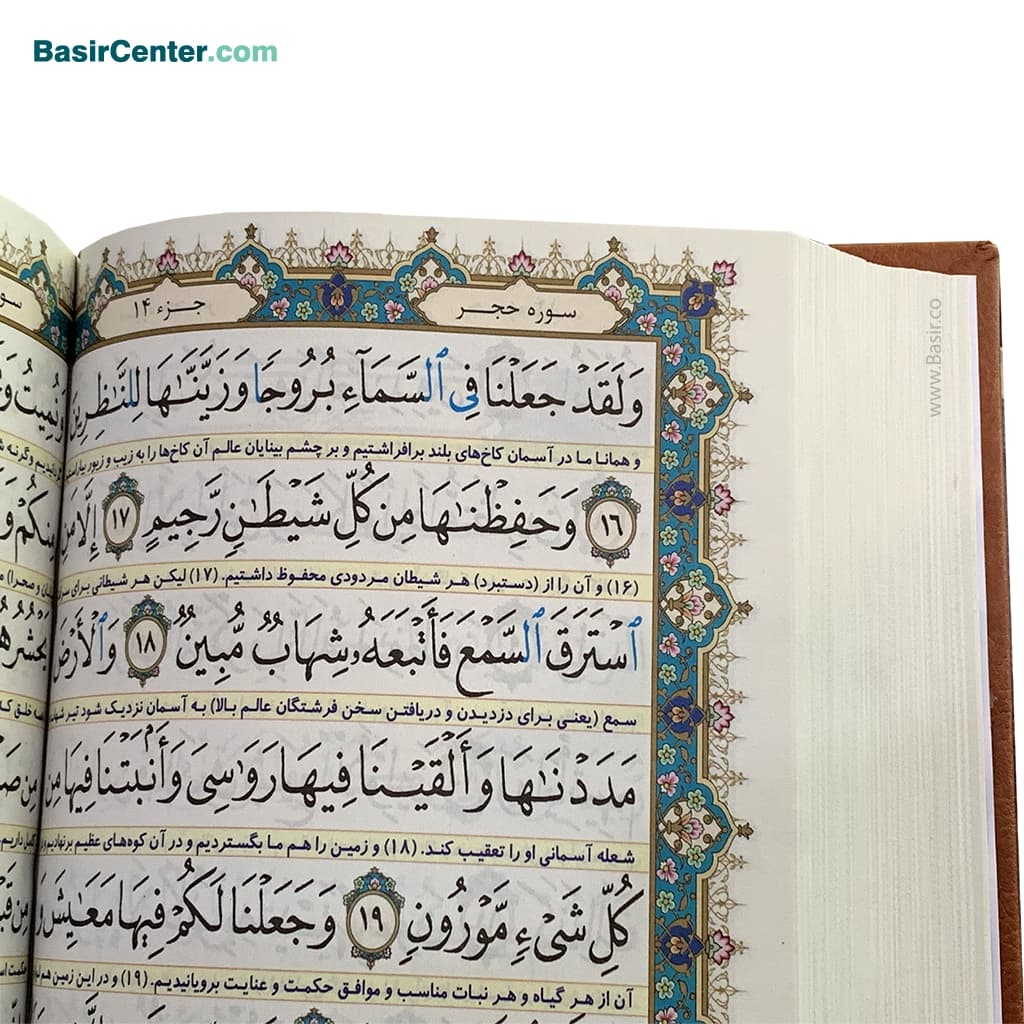 BasirCenter.com
سوره حجر
جزء ۱۴
وَلَقَدْ جَعَلْنَا فِی ٱلسَّمَآءِ بُرُوجًا وَزَیَّنَّـٰهَا لِلنَّـٰظِرِینَ
و همانا ما در آسمان کاخ‌های بلند برافراشتیم و بر چشم بینایان عالم آن کاخ‌ها را به زیب و زیور
۱۶ وَحَفِظْنَـٰهَا مِن کُلِّ شَیْطَـٰنٍ رَّجِیمٍ ۱۷ إِلَّا مَنِ
(۱۶) و آن را از (دستبرد) هر شیطان مردودی محفوظ داشتیم. (۱۷) لیکن هر شیطانی برای
ٱسْتَرَقَ ٱلسَّمْعَ فَأَتْبَعَهُۥ شِهَابٌ مُّبِینٌ ۱۸ وَٱلْأَرْضَ
سمع (یعنی برای دزدیدن و دریافتن سخن فرشتگان عالم بالا) به آسمان نزدیک شود تیر
مَدَدْنَـٰهَا وَأَلْقَیْنَا فِیهَا رَوَٰسِیَ وَأَنۢبَتْنَا فِیهَا مِن
شعله آسمانی او را تعقیب کند. (۱۸) و زمین را هم ما بگستردیم و در آن کوه‌های عظیم برنهادیم
کُلِّ شَیْءٍ مَّوْزُونٍ ۱۹ وَجَعَلْنَا لَکُمْ فِیهَا مَعَـٰیِشَ
آن از هر گیاه و هر نبات مناسب و موافق حکمت و عنایت برویانیدیم. (۱۹) و در این زمین هم
www.Basir.co